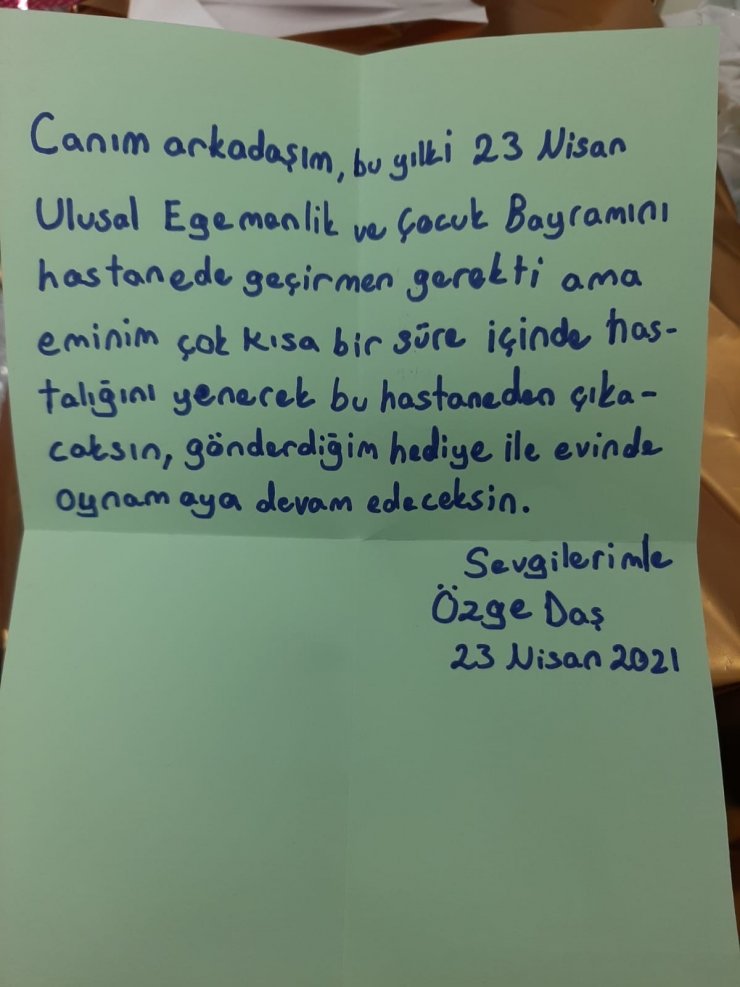 Canım arkadaşım, bu yılki 23 Nisan
Ulusal Egemanlik ve Çocuk Bayramını
hastanede geçirmen gerekti ama
eminim çok kısa bir süre içinde has-
talığını yenerek bu hastaneden çıka-
caksın, gönderdiğim hediye ile evinde
oynamaya devam edeceksin.
Sevgilerimle
Özge Daş
23 Nisan 2021